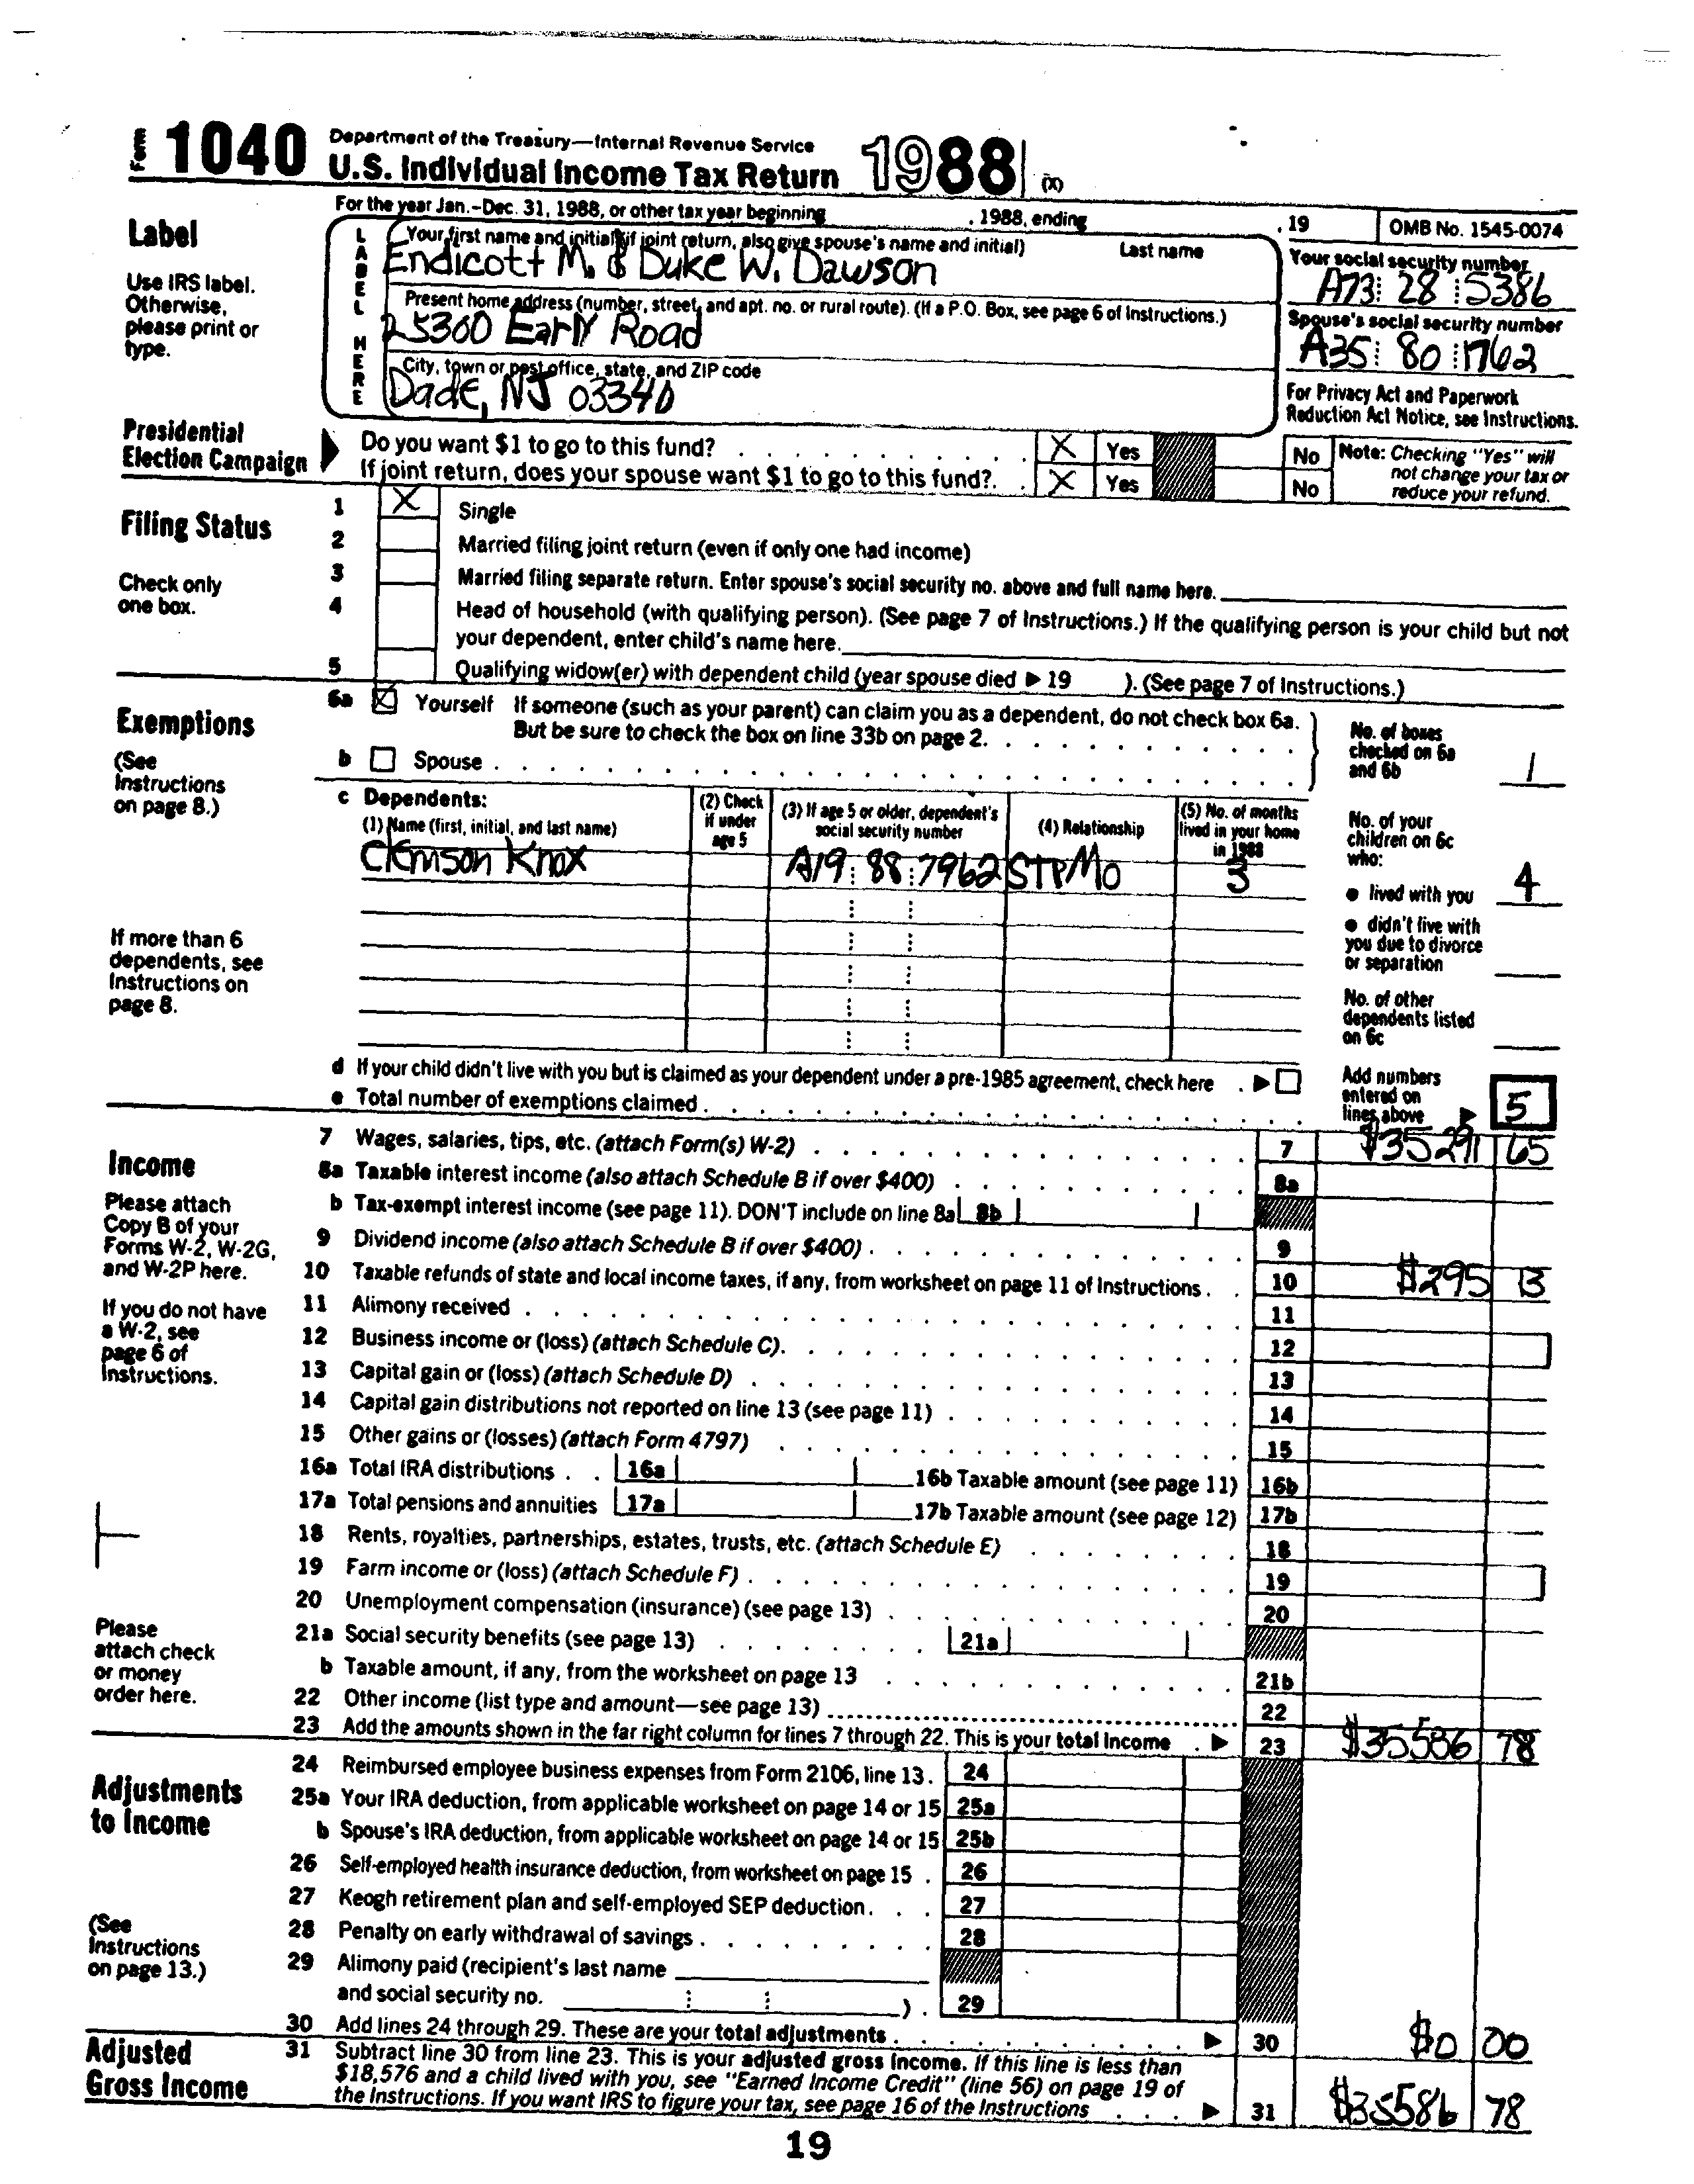 Form 1040 Department of the Treasury—Internal Revenue Service
U.S. Individual Income Tax Return 1988 (X)
For the year Jan.–Dec. 31, 1988, or other tax year beginning , 1988, ending , 19 OMB No. 1545-0074
Label
Use IRS label.
Otherwise,
please print or
type.
LABEL HERE
Your first name and initial (if joint return, also give spouse's name and initial) Last name
Endicott M. & Duke W. Dawson
Your social security number
A73 28 5386
Present home address (number, street, and apt. no. or rural route). (If a P.O. Box, see page 6 of Instructions.)
25300 Early Road
Spouse's social security number
A35 80 1762
City, town or post office, state, and ZIP code
Dade, NJ 03340
For Privacy Act and Paperwork
Reduction Act Notice, see Instructions.
Presidential
Election Campaign
Do you want $1 to go to this fund? X Yes No
If joint return, does your spouse want $1 to go to this fund? X Yes No
Note: Checking "Yes" will
not change your tax or
reduce your refund.
Filing Status
Check only
one box.
1 X Single
2 Married filing joint return (even if only one had income)
3 Married filing separate return. Enter spouse's social security no. above and full name here.
4 Head of household (with qualifying person). (See page 7 of Instructions.) If the qualifying person is your child but not
your dependent, enter child's name here.
5 Qualifying widow(er) with dependent child (year spouse died ▶ 19 ). (See page 7 of Instructions.)
Exemptions
(See
Instructions
on page 8.)
6a X Yourself If someone (such as your parent) can claim you as a dependent, do not check box 6a.
But be sure to check the box on line 33b on page 2.
b Spouse
No. of boxes
checked on 6a
and 6b 1
c Dependents:
(1) Name (first, initial, and last name)
(2) Check
if under
age 5
(3) If age 5 or older, dependent's
social security number
(4) Relationship
(5) No. of months
lived in your home
in 1988
Clemson Knox A19 88 7962 STPMO 3
No. of your
children on 6c
who:
• lived with you 4
• didn't live with
you due to divorce
or separation
No. of other
dependents listed
on 6c
If more than 6
dependents, see
Instructions on
page 8.
d If your child didn't live with you but is claimed as your dependent under a pre-1985 agreement, check here ▶
e Total number of exemptions claimed
Add numbers
entered on
lines above ▶ 5
Income
Please attach
Copy B of your
Forms W-2, W-2G,
and W-2P here.
If you do not have
a W-2, see
page 6 of
Instructions.
7 Wages, salaries, tips, etc. (attach Form(s) W-2) 7 $35291 65
8a Taxable interest income (also attach Schedule B if over $400) 8a
b Tax-exempt interest income (see page 11). DON'T include on line 8a 8b
9 Dividend income (also attach Schedule B if over $400) 9
10 Taxable refunds of state and local income taxes, if any, from worksheet on page 11 of Instructions 10 $295 13
11 Alimony received 11
12 Business income or (loss) (attach Schedule C) 12
13 Capital gain or (loss) (attach Schedule D) 13
14 Capital gain distributions not reported on line 13 (see page 11) 14
15 Other gains or (losses) (attach Form 4797) 15
16a Total IRA distributions 16a 16b Taxable amount (see page 11) 16b
17a Total pensions and annuities 17a 17b Taxable amount (see page 12) 17b
18 Rents, royalties, partnerships, estates, trusts, etc. (attach Schedule E) 18
19 Farm income or (loss) (attach Schedule F) 19
20 Unemployment compensation (insurance) (see page 13) 20
21a Social security benefits (see page 13) 21a
b Taxable amount, if any, from the worksheet on page 13 21b
22 Other income (list type and amount—see page 13) 22
23 Add the amounts shown in the far right column for lines 7 through 22. This is your total income ▶ 23 $35586 78
Please
attach check
or money
order here.
Adjustments
to Income
(See
Instructions
on page 13.)
24 Reimbursed employee business expenses from Form 2106, line 13. 24
25a Your IRA deduction, from applicable worksheet on page 14 or 15 25a
b Spouse's IRA deduction, from applicable worksheet on page 14 or 15 25b
26 Self-employed health insurance deduction, from worksheet on page 15 26
27 Keogh retirement plan and self-employed SEP deduction 27
28 Penalty on early withdrawal of savings 28
29 Alimony paid (recipient's last name
and social security no. ) 29
30 Add lines 24 through 29. These are your total adjustments ▶ 30 $0 00
Adjusted
Gross Income
31 Subtract line 30 from line 23. This is your adjusted gross income. If this line is less than
$18,576 and a child lived with you, see "Earned Income Credit" (line 56) on page 19 of
the Instructions. If you want IRS to figure your tax, see page 16 of the Instructions ▶ 31 $35586 78
19